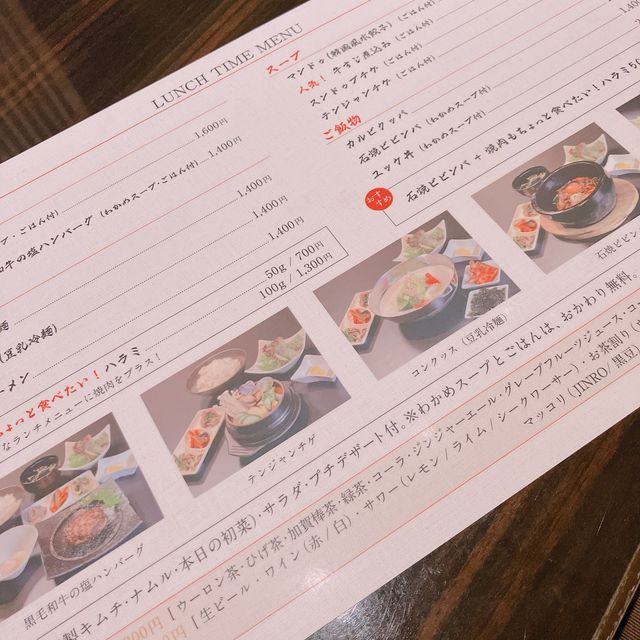 LUNCH TIME MENU
1,600円
プ・ごはん付)
1,400円
和牛の塩ハンバーグ (わかめスープ・ごはん付)
1,400円
1,400円
麺
1,400円
(豆乳冷麺)
ーメン
ちょっと食べたい！ハラミ
50g / 700円
100g / 1,300円
なランチメニューに焼肉をプラス！
スープ
マンドゥ(韓国風水餃子) (ごはん付)
人気！牛すじ煮込み (ごはん付)
スンドゥブチゲ (ごはん付)
テンジャンチゲ (ごはん付)
ご飯物
カルビクッパ
石焼ビビンバ (わかめスープ付)
ユッケ丼 (わかめスープ付)
おすすめ
石焼ビビンバ + 焼肉もちょっと食べたい！ハラミ50
1,40
石焼ビビン
コンクッス (豆乳冷麺)
テンジャンチゲ
黒毛和牛の塩ハンバーグ
製キムチ・ナムル・本日の初菜)・サラダ・プチデザート付。※わかめスープとごはんは、おかわり無料。
300円 [ウーロン茶・ひげ茶・加賀棒茶・緑茶・コーラ・ジンジャーエール・グレープフルーツジュース・コ
円 [生ビール・ワイン(赤/白)・サワー(レモン/ライム/シークワーサー)・お茶割り
マッコリ(JINRO/黒豆)